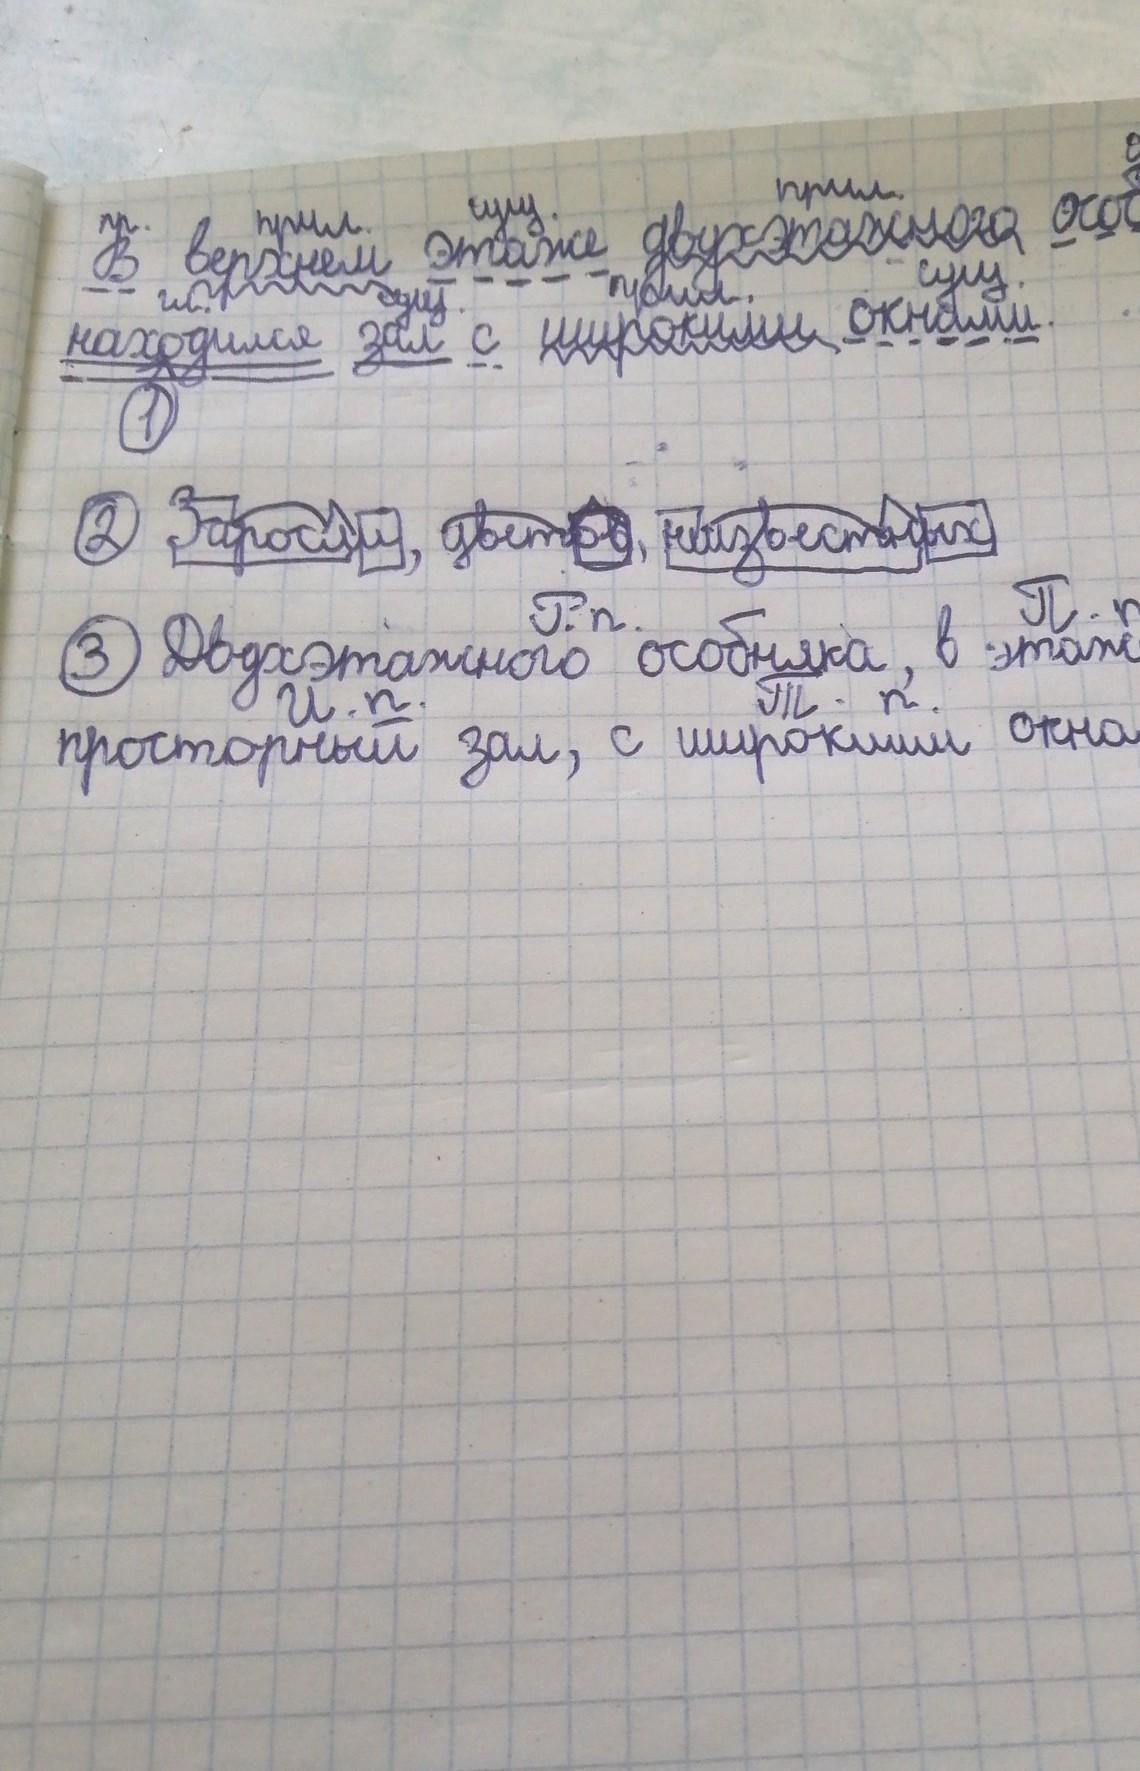 пр. прил. сущ. прил.
В верхнем этаже двухэтажного особ
гл. сущ. прил. сущ.
находился зал с широкими окнами.
1
2 Заросли, цветов, неизвестных
Р. п. П. п
3 Двухэтажного особняка, в этаж
И. п. Т. п.
просторный зал, с широкими окна